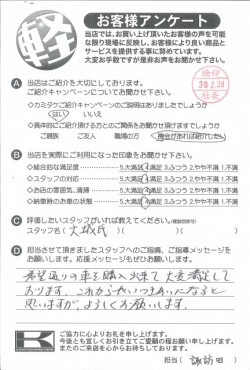 軽
お客様アンケート
当店では、お買い上げ頂いたお客様の声を可能
な限り現場に反映し、お客様により良い商品と
サービスを提供する事に努めています。
大変お手数ですが是非お声をお聞かせ下さい。
検印
社長
A 当店はご紹介を大切にしております。
ご紹介キャンペーンについてお聞かせ下さい。
◇カミタケご紹介キャンペーンのご説明はありましたでしょうか
はい いいえ
◇具体的にご紹介頂ける方とのご関係をお聞かせ頂けますでしょうか
ご親族 ご友人 職場の方 機会があれば紹介したい
B 当店を実際にご利用になった印象をお聞かせ下さい。
◇総合的な満足度 5.大満足 4.満足 3.ふつう 2.やや不満 1.不満
◇スタッフの対応 5.大満足 4.満足 3.ふつう 2.やや不満 1.不満
◇お店の雰囲気、清掃 5.大満足 4.満足 3.ふつう 2.やや不満 1.不満
◇納車時のお車の状態 5.大満足 4.満足 3.ふつう 2.やや不満 1.不満
C 評価したいスタッフがいれば教えてください。
スタッフ名( 大城氏 )
D 担当させて頂きましたスタッフへのご指摘、ご指導メッセージを
お願いします。応援メッセージもぜひお願いします。
希望通りの車を購入出来て大変満足して
おります。これからやいつきあいになると
思いますが、よろしくお願いします。
K
ご協力に心よりお礼を申し上げます。
今後とも宜しくお引き立てご愛顧の程お願い申し上げます。
またのご来店を心からお待ちしております。
担当( 諏訪田 )